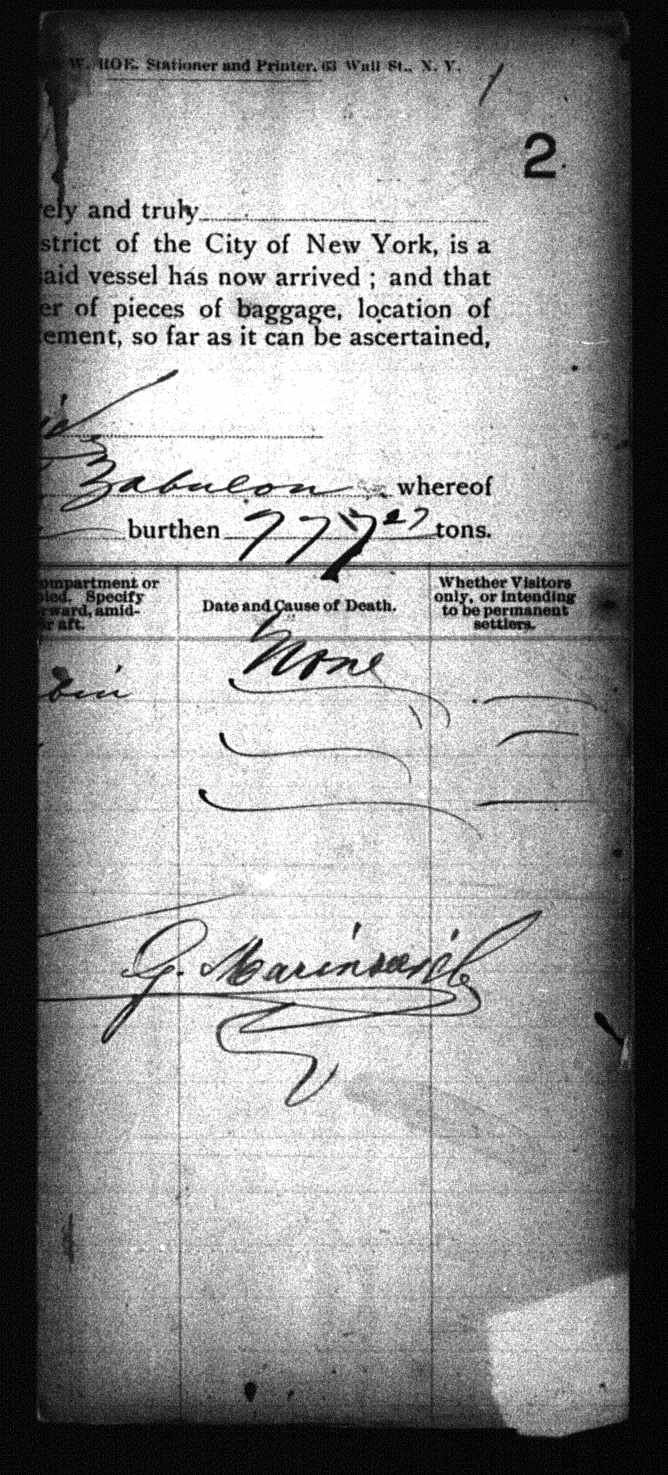 W. ROE. Stationer and Printer, 63 Wall St., N. Y.
2
ely and truly
strict of the City of New York, is a
aid vessel has now arrived ; and that
er of pieces of baggage, location of
ement, so far as it can be ascertained,
Zabulon whereof
burthen 777 27 tons.
ompartment or
pied. Specify
rward, amid-
r aft.
Date and Cause of Death.
Whether Visitors
only, or intending
to be permanent
settlers.
None
bin
G. Marinovich